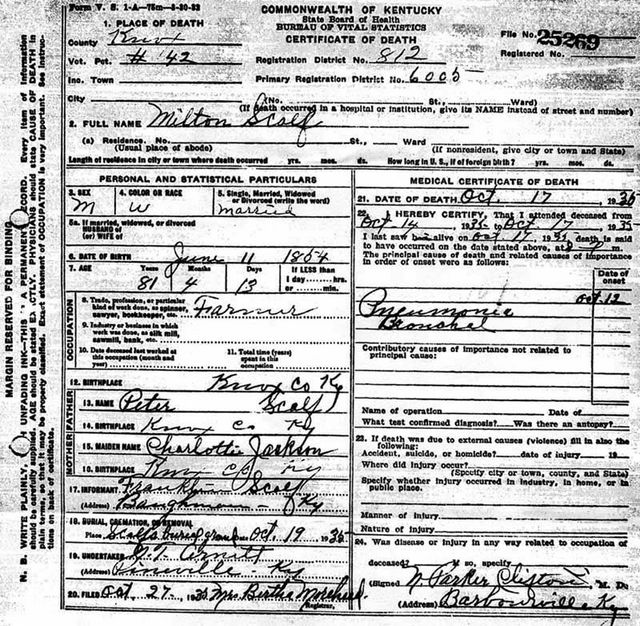 Form V. S. 1-A—75m—8-30-32
COMMONWEALTH OF KENTUCKY
State Board of Health
BUREAU OF VITAL STATISTICS
CERTIFICATE OF DEATH
1. PLACE OF DEATH
County Knox
Vot. Pct. #42
Inc. Town
Registration District No. 812
Primary Registration District No. 6005
File No. 25269
Registered No.
City (No. St., Ward)
(If death occurred in a hospital or institution, give its NAME instead of street and number)
2. FULL NAME Milton Scalf
(a) Residence. No. St., Ward
(Usual place of abode) (If nonresident, give city or town and State)
Length of residence in city or town where death occurred yrs. mos. ds. How long in U. S., if of foreign birth? yrs. mos. ds.
PERSONAL AND STATISTICAL PARTICULARS
3. SEX M
4. COLOR OR RACE W
5. Single, Married, Widowed or Divorced (write the word) Married
5a. If married, widowed, or divorced
HUSBAND of
(or) WIFE of
6. DATE OF BIRTH June 11 1854
7. AGE Years 81 Months 4 Days 13
If LESS than
1 day hrs.
or min.
OCCUPATION
8. Trade, profession, or particular kind of work done, as spinner, sawyer, bookkeeper, etc. Farmer
9. Industry or business in which work was done, as silk mill, sawmill, bank, etc.
10. Date deceased last worked at this occupation (month and year)
11. Total time (years) spent in this occupation
12. BIRTHPLACE Knox Co Ky
FATHER
13. NAME Peter Scalf
14. BIRTHPLACE Knox Co Ky
MOTHER
15. MAIDEN NAME Charlottie Jackson
16. BIRTHPLACE Knox Co Ky
17. INFORMANT Franklin Scalf
(Address) Baughman - Ky
18. BURIAL, CREMATION, OR REMOVAL
Place Scalfs burial ground Date Oct. 19 1935
19. UNDERTAKER
(Address) Pineville Ky
20. FILED Oct. 27, 1935 Mrs Birtha
Registrar.
MEDICAL CERTIFICATE OF DEATH
21. DATE OF DEATH Oct. 17 1935
22. I HEREBY CERTIFY, That I attended deceased from
Oct 14 1935 to Oct 17 1935
I last saw him alive on Oct 17, 1935 death is said
to have occurred on the date stated above, at
The principal cause of death and related causes of importance
in order of onset were as follows:
Date of onset
Pneumonia Oct 12
Bronchal
Contributory causes of importance not related to
principal cause:
Name of operation Date of
What test confirmed diagnosis? Was there an autopsy?
23. If death was due to external causes (violence) fill in also the
following:
Accident, suicide, or homicide? date of injury 19
Where did injury occur?
(Specify city or town, county, and State)
Specify whether injury occurred in industry, in home, or in
public place.
Manner of injury
Nature of injury
24. Was disease or injury in any way related to occupation of
deceased? If so, specify
(Signed) Parker M. D.
(Address) Barbourville Ky
MARGIN RESERVED FOR BINDING
N. B. WRITE PLAINLY, UNFADING INK—THIS A PERMANENT RECORD. Every item of information
should be carefully supplied. AGE should be stated EXACTLY. PHYSICIANS should state CAUSE OF DEATH in
plain terms, so that it may be properly classified. Exact statement of OCCUPATION is very important. See instruc-
tions on back of certificate.